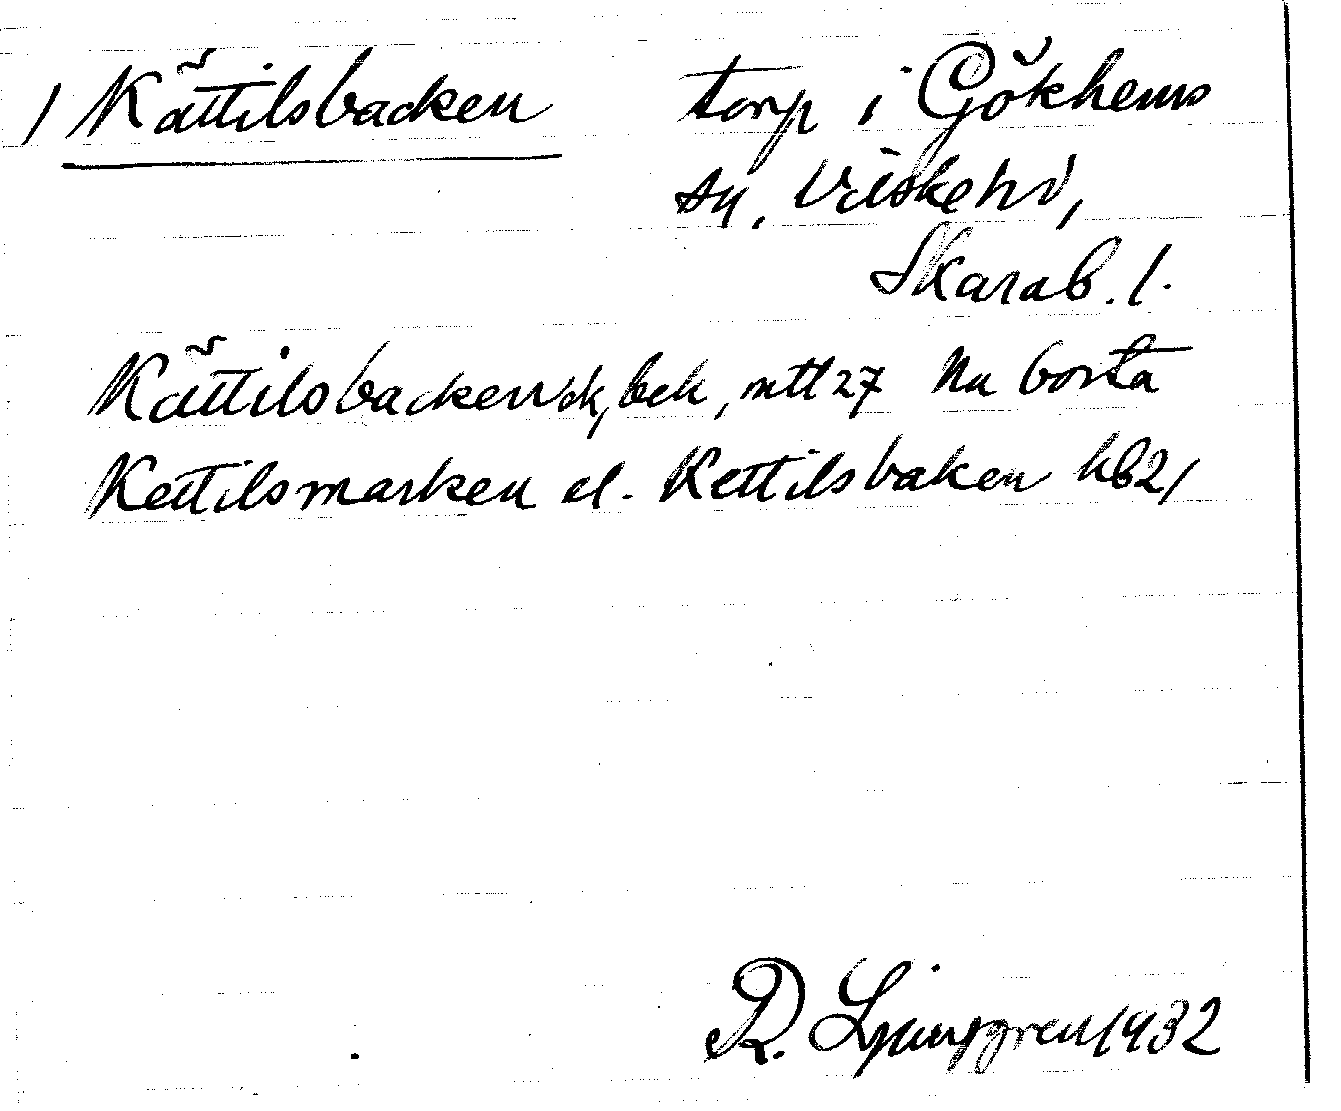 / Kättilsbacken torp i Gökhems
sn, Vilske hd,
Skarab. l.
Kättilsbacken ek, bek, mtl 27 Nu borta
Kettilsmarken el. Kettilsbaken hb 21
R. Ljunggren 1932